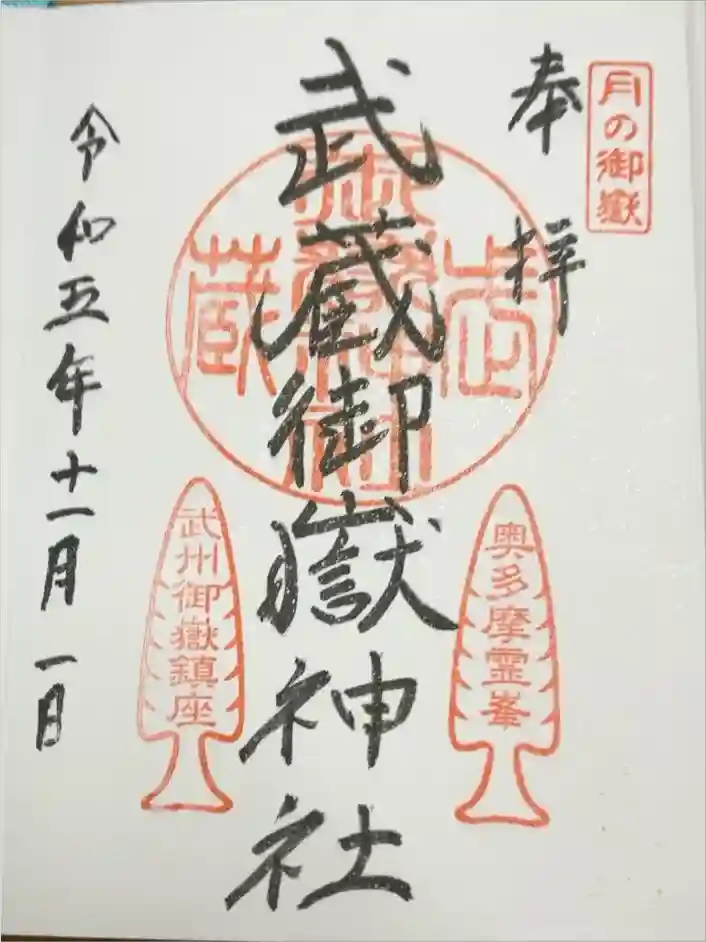 月の御嶽
奉拝
奥多摩霊峯
武蔵御嶽神社
武州御嶽鎮座
令和五年十一月一日